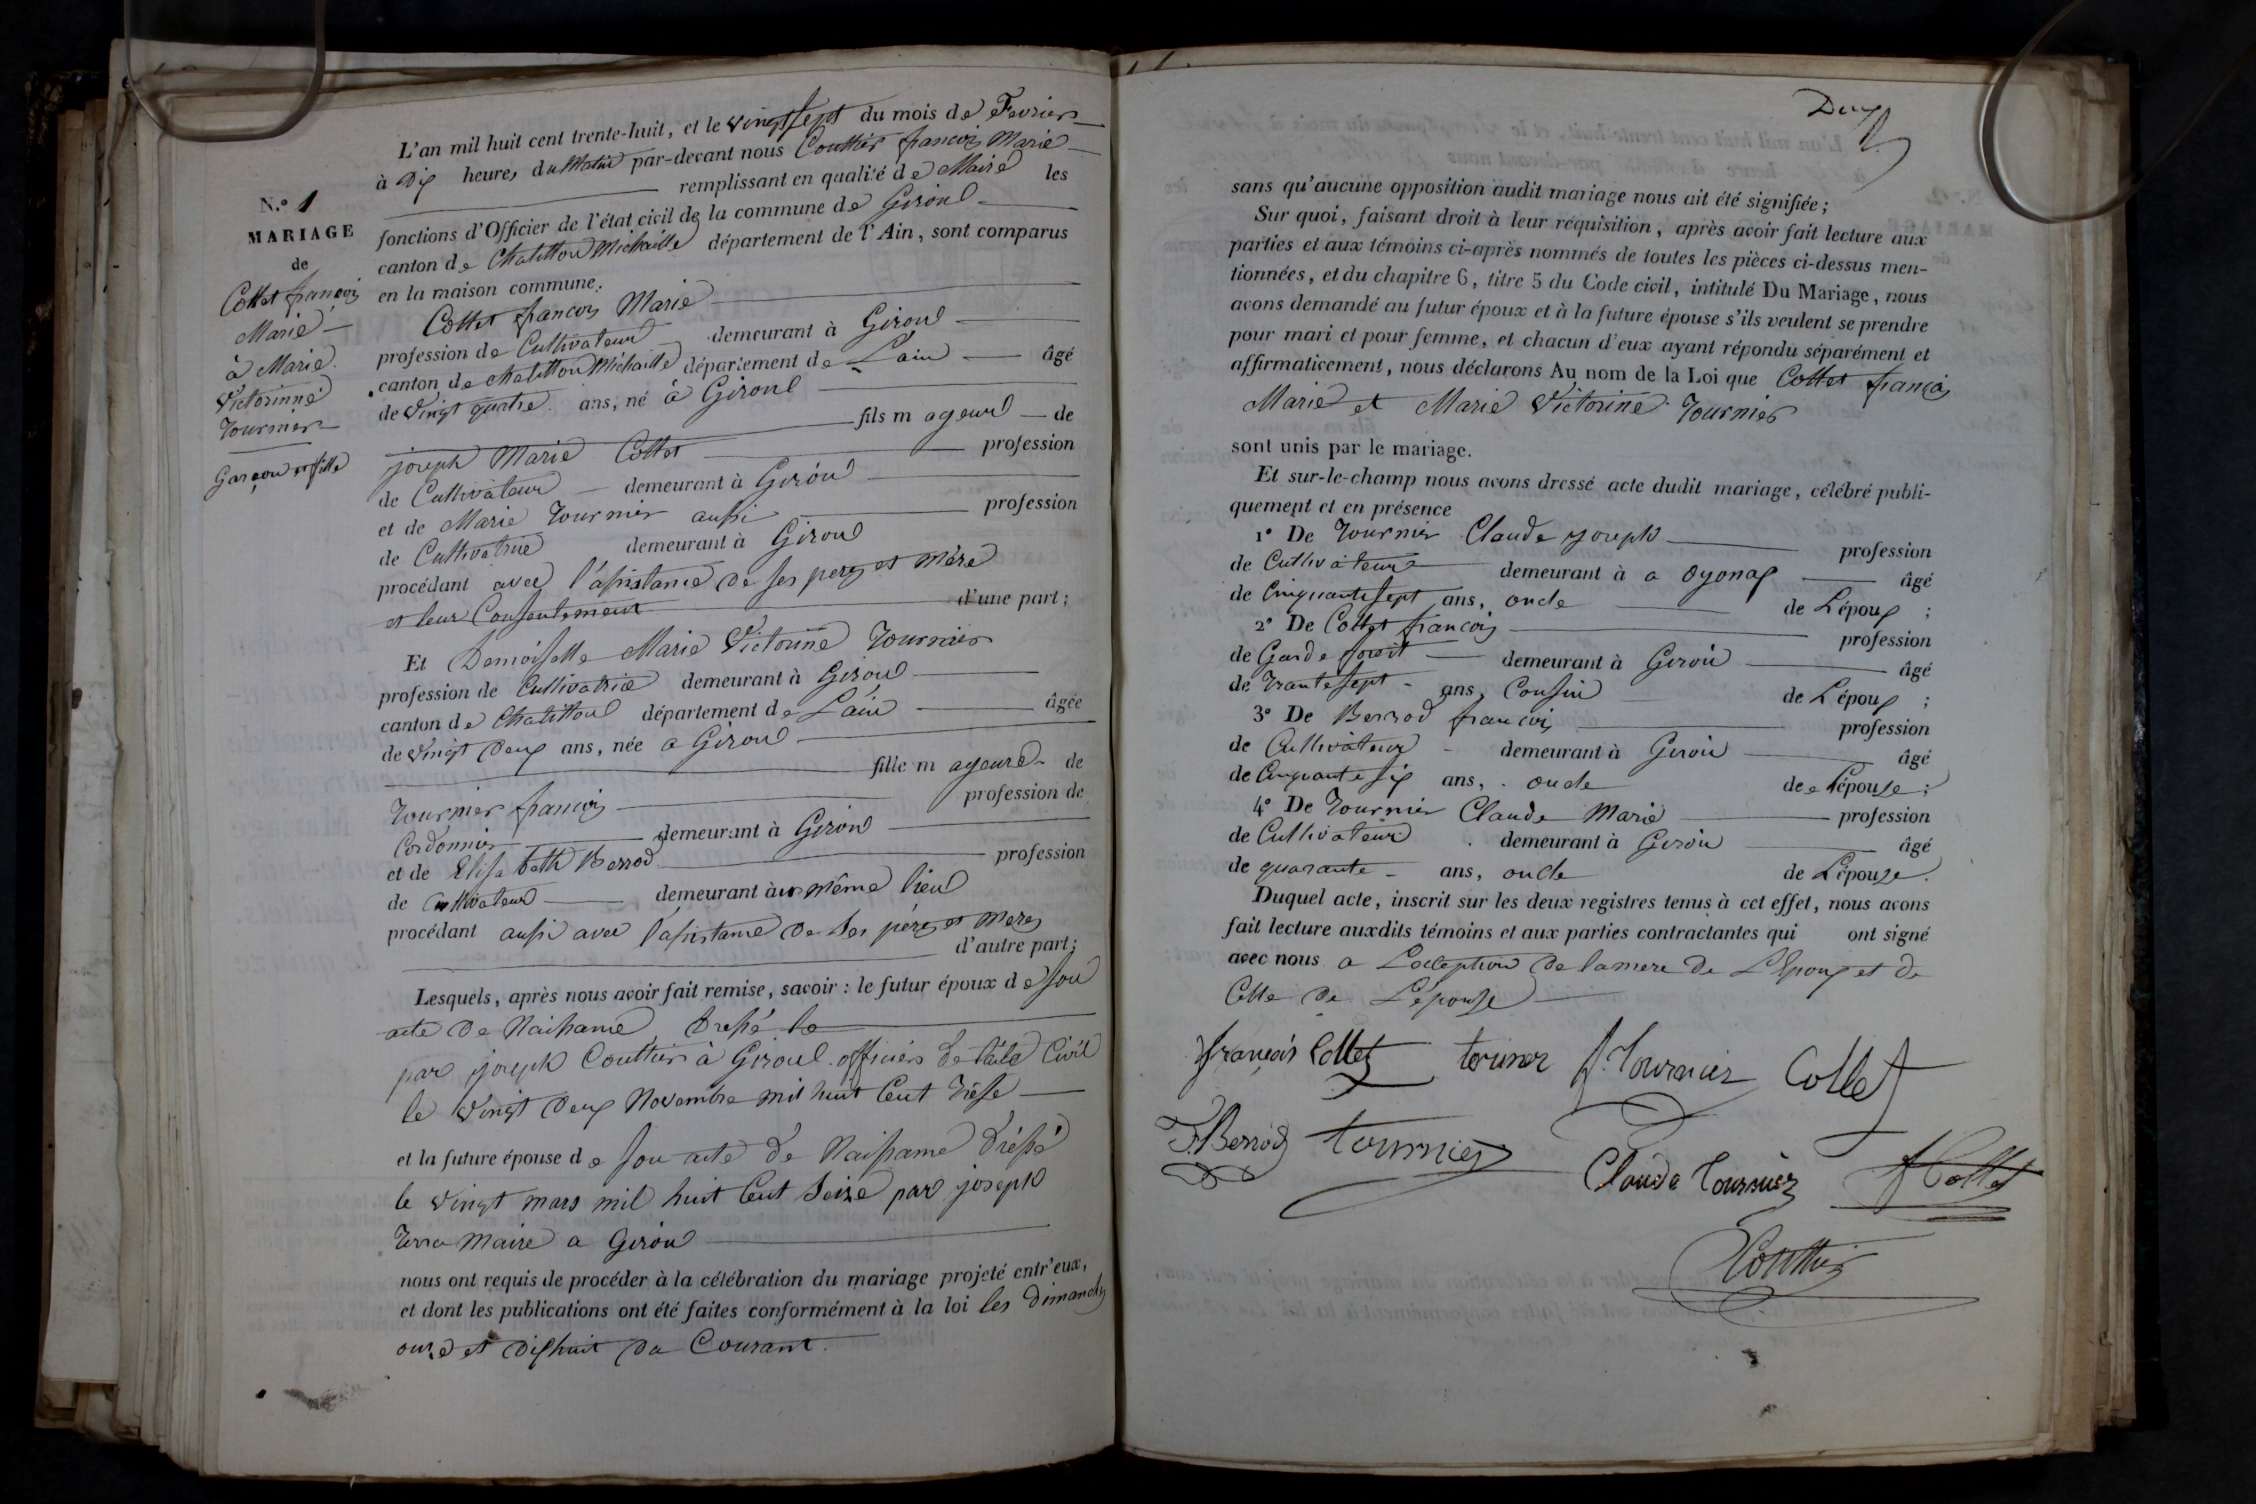 L'an mil huit cent trente-huit, et le vingt sept du mois de Fevrier
à Dix heures du Matin par-devant nous Couttier francois Marie
remplissant en qualité de Maire les
fonctions d'Officier de l'état civil de la commune de Giron
canton de Chatillon Michaille département de l'Ain, sont comparus
en la maison commune.
N.º 1
MARIAGE
de
Collet françois
Marie
à Marie
Victorinne
Tournier
Garçon et fille
Collet francois Marie
profession de Cultivateur demeurant à Giron
canton de chatillon Michaille département de Lain âgé
de vingt quatre ans, né à Giron
fils m ageur de
joseph Marie Collet profession
de Cultivateur demeurant à Giron
et de Marie Tournier aussi profession
de Cultivatrice demeurant à Giron
procédant avec l'assistance de ses peres et mère
et leur Consentement d'une part;
Et Demoiselle Marie Victorine Tournier
profession de Cultivatrice demeurant à Giron
canton de Chatillon département de Lain âgée
de vingt Deux ans, née a Giron
fille m ageure de
Tournier francois profession de
Cordonnier demeurant à Giron
et de Elisabeth Berrod profession
de Cultivateur demeurant à même lieu
procédant aussi avec l'assistance de ses pères et meres
d'autre part;
Lesquels, après nous avoir fait remise, savoir : le futur époux de son
acte de Naissance, Dressé le
par joseph Couttier à Giron officier de l'état Civil
le vingt deux Novembre mil huit Cent Trèse
et la future épouse de son acte de Naissance Dressé
le vingt mars mil huit Cent Seize par joseph
maire a Giron
nous ont requis de procéder à la célébration du mariage projeté entr'eux,
et dont les publications ont été faites conformément à la loi les dimanches
onze et dixhuit du Courant.
Deux
sans qu'aucune opposition audit mariage nous ait été signifiée;
Sur quoi, faisant droit à leur réquisition, après avoir fait lecture aux
parties et aux témoins ci-après nommés de toutes les pièces ci-dessus men-
tionnées, et du chapitre 6, titre 5 du Code civil, intitulé Du Mariage, nous
avons demandé au futur époux et à la future épouse s'ils veulent se prendre
pour mari et pour femme, et chacun d'eux ayant répondu séparément et
affirmativement, nous déclarons Au nom de la Loi que Collet françois
Marie et Marie Victorine Tournier
sont unis par le mariage.
Et sur-le-champ nous avons dressé acte dudit mariage, célébré publi-
quement et en présence
1º De Tournier Claude joseph profession
de Cultivateur demeurant à a oyonax âgé
de Cinquante sept ans, oncle de L'époux ;
2º De Collet francois profession
de Garde forêt demeurant à Giron âgé
de Trante sept ans, Cousin de L'époux ;
3º De Berrod francois profession
de Cultivateur demeurant à Giron âgé
de Cinquante six ans, oncle de l'épouse;
4º De Tournier Claude Marie profession
de Cultivateur demeurant à Giron âgé
de quarante ans, oncle de L'épouse.
Duquel acte, inscrit sur les deux registres tenus à cet effet, nous avons
fait lecture auxdits témoins et aux parties contractantes qui ont signé
avec nous a L'exception de la mere de L'Epoux et de
Celle de L'épouse
françois Collet tournier f. Tournier Collet
F. Berrod tournier
Claude Tournier f Collet
Couttier